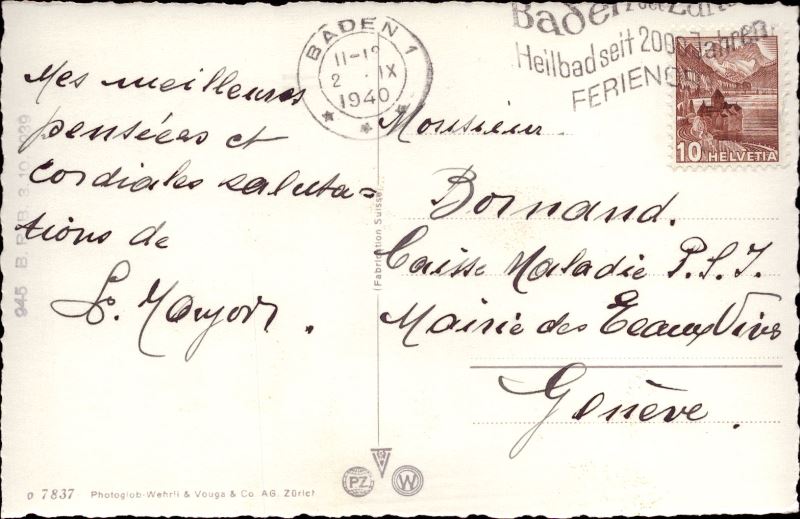 Mes meilleures
pensées et
cordiales saluta=
tions de
BADEN 1
2 . IX
1940
Baden
Heilbad seit 2000 Jahren
10 HELVETIA
Monsieur
Bornand.
Caisse Maladie P.S.I.
Mairie des Eeaux Vives
Genève.
(Fabrication Suisse)
945 B. R./B. 3.10.1939
o 7837 Photoglob-Wehrli & Vouga & Co. AG. Zürich
PZ
W